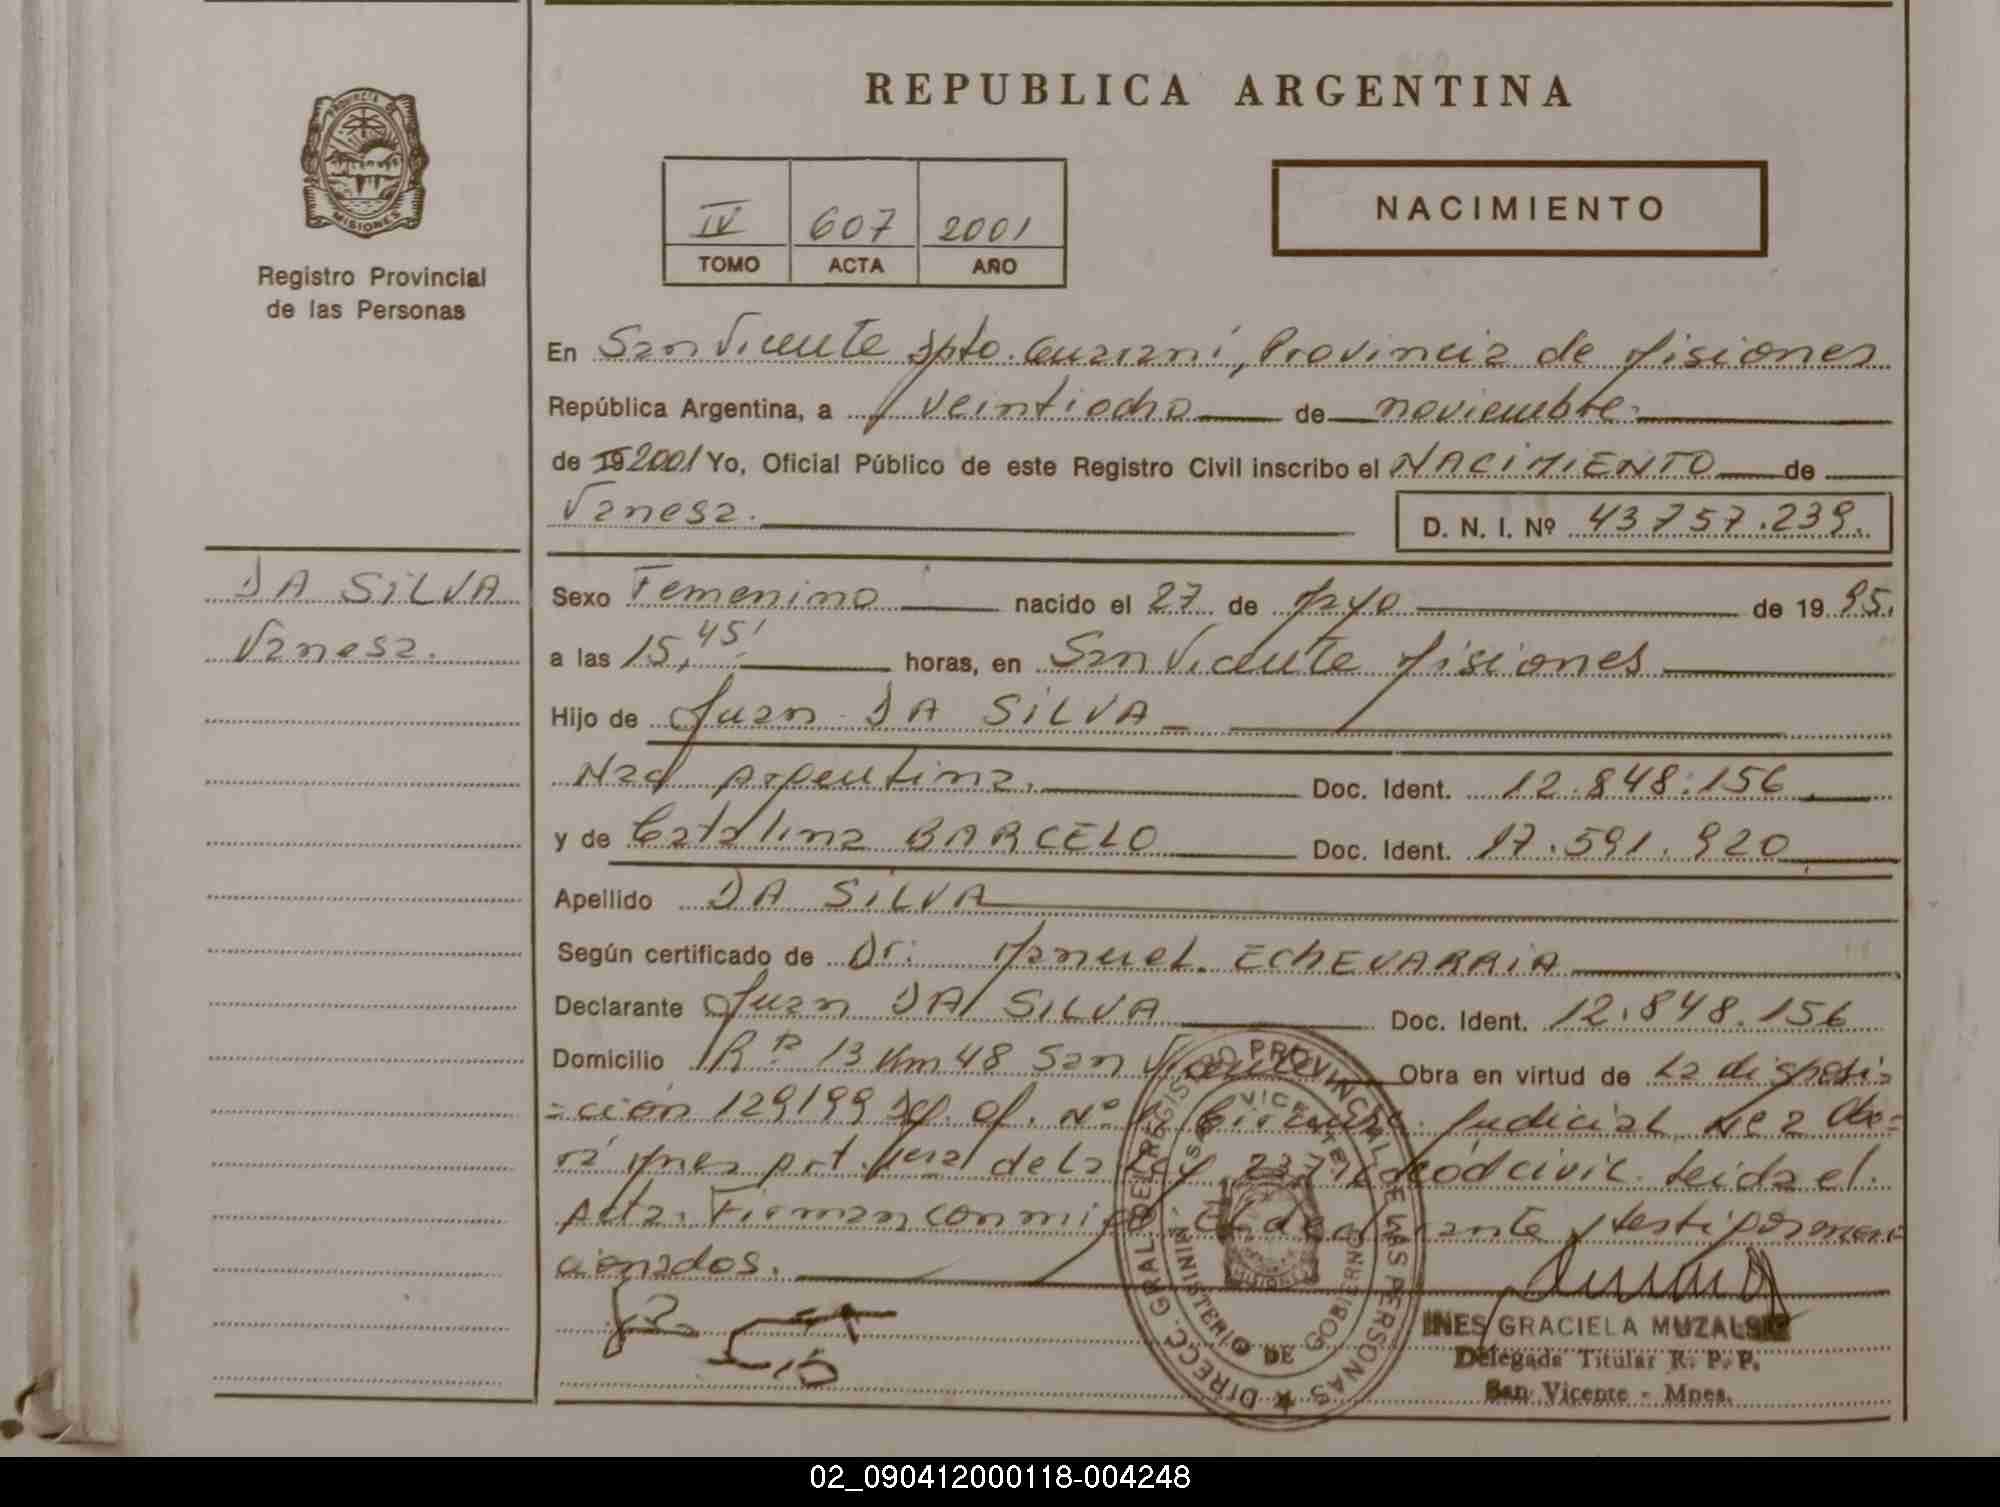 REPUBLICA ARGENTINA
PROVINCIA DE
MISIONES
Registro Provincial
de las Personas
IV 607 2001
TOMO ACTA AÑO
NACIMIENTO
En San Vicente Dpto. Guaraní, Provincia de Misiones
República Argentina, a veintiocho de noviembre
de 19 2001 Yo, Oficial Público de este Registro Civil inscribo el NACIMIENTO de
Vanesa.
D. N. I. Nº 43757.239.
DA SILVA
Vanesa.
Sexo Femenino nacido el 27 de Mayo de 19 95.
a las 15,45' horas, en San Vicente Misiones
Hijo de Juan DA SILVA
Nac Argentina. Doc. Ident. 12.848.156
y de Catalina BARCELO Doc. Ident. 17.591.920
Apellido DA SILVA
Según certificado de Dr. Manuel ECHEVARRIA
Declarante Juan DA SILVA Doc. Ident. 12.848.156
Domicilio Rta 13 Km 48 San Vicente Obra en virtud de La disposi=
=ción 129199 Nº Circunsc. Judicial Nº 2 Obe=
rá Mnes Art. 1era de la Ley cód civil. Leida el
Acta. Firman conmigo el declarante y testigos men
cionados.
DIRECC. GRAL. DEL REGISTRO PROVINCIAL DE LAS PERSONAS
SAN VICENTE
MINISTERIO DE GOBIERNO
MISIONES
INES GRACIELA MUZALSKI
Delegada Titular R. P. P.
San Vicente - Mnes.
02_090412000118-004248